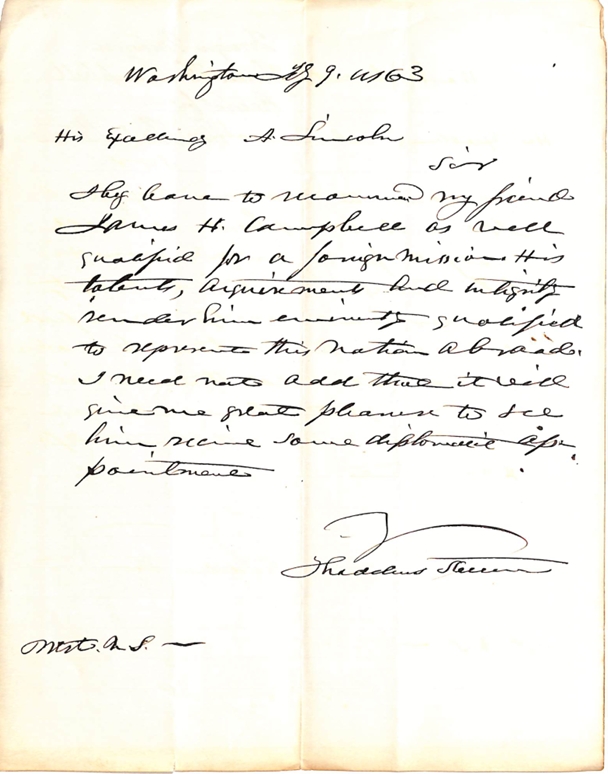 Washington 9. 1863
His Excellency A. Lincoln
Sir
I beg leave to recommend my friend
James H. Campbell as well
qualified for a foreign mission His
talents, acquirements and integrity
render him eminently qualified
to represent this nation abroad.
I need not add that it will
give me great pleasure to see
him receive some diplomatic ap
pointment
Thaddeus Stevens